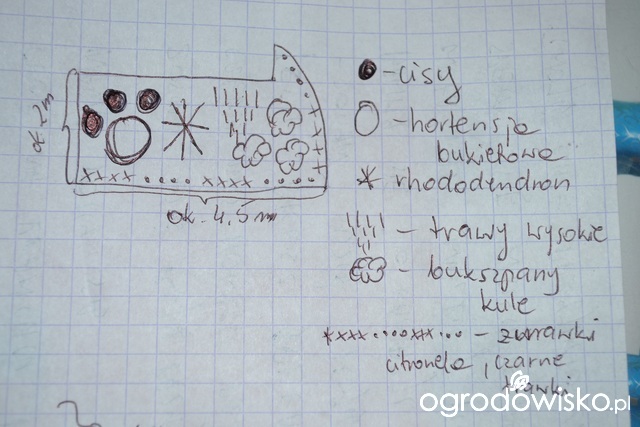 ok 2m
ok. 4,5m
- cisy
- hortensja
bukietowa
rhododendron
- trawy wysokie
- bukszpany
kule
xxxx....xxx... - żurawki
citronela, czarne
trawki
ogrodowisko.pl